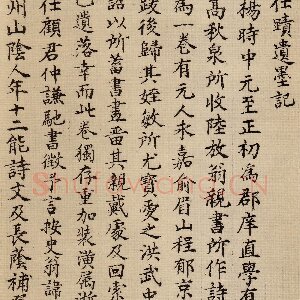 任蹟遺墨記
楊時中元至正初為郡庠直學有
高秋泉所收陸放翁親書所作詩
為一卷有元人永嘉俞眉山程郁京
跋後歸其姪敏所尤寶愛之洪武中
詔以所蓄書畫畱其親戴處及回索
已遺落幸而此卷獨存重加裝潢屬游
任顧君仲謙馳書徵予言按史翁諱
州山陰人年十二能詩文及長蔭補登